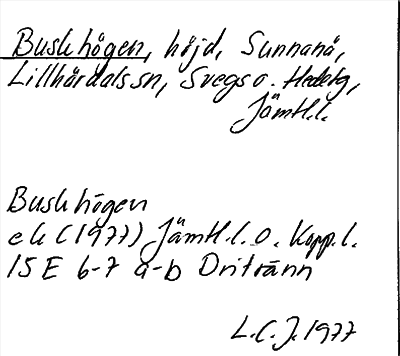 Buskhögen, höjd, Sunnanå,
Lillhärdals sn, Svegs o. Hedetg,
Jämtl.l.
Buskhögen
ek (1977) Jämtl.l. o. Kopp.l.
15 E 6-7 a-b Oritränn
L.C.J. 1977